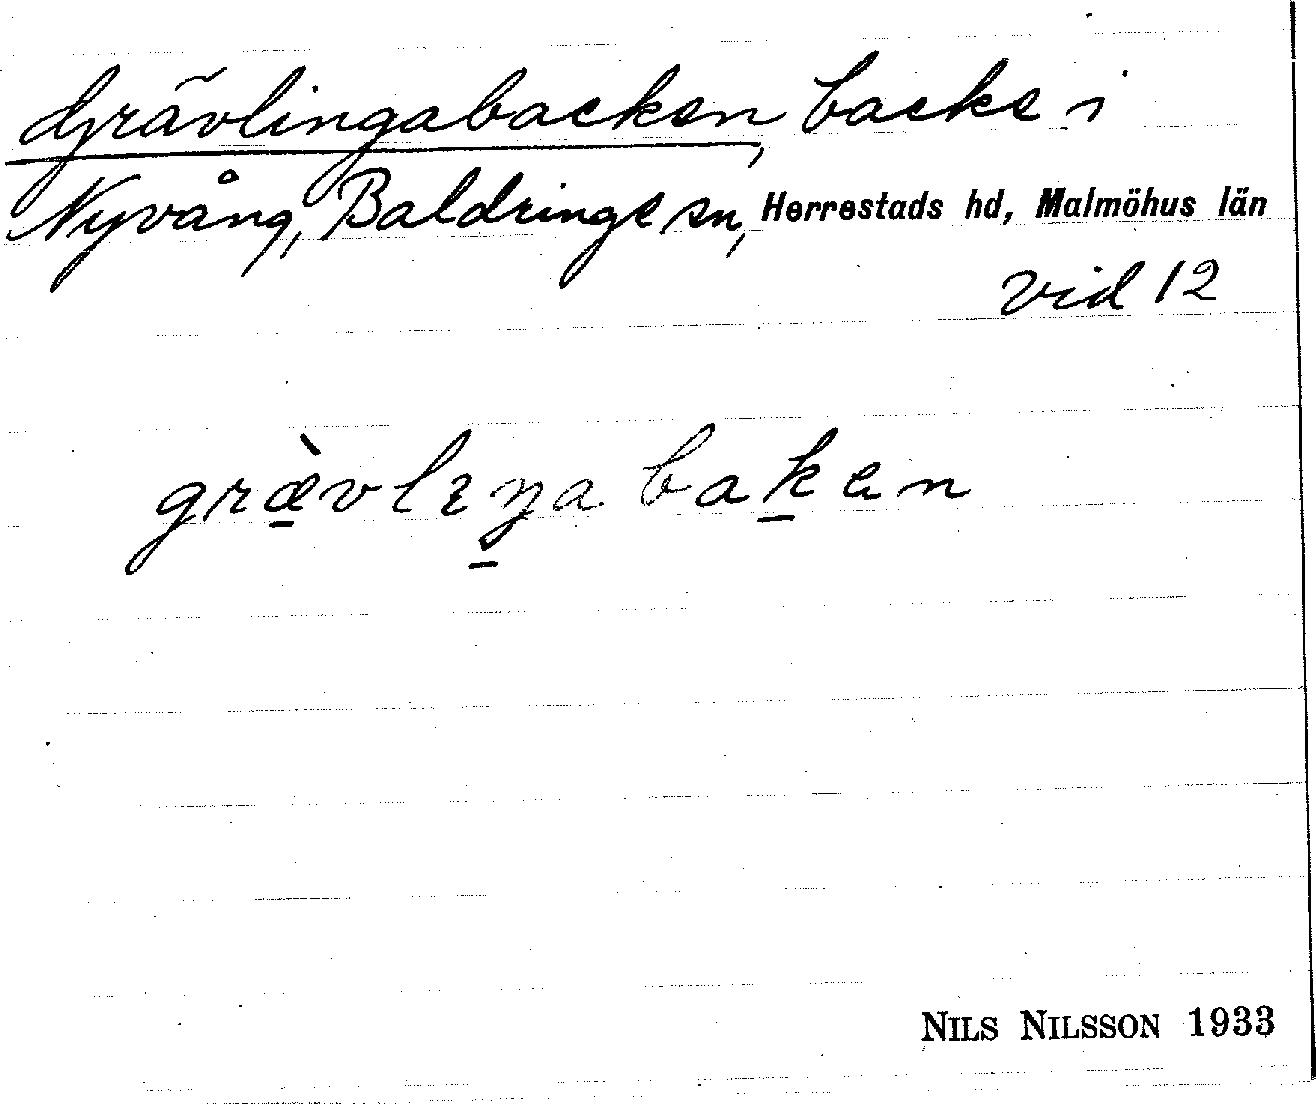 Grävlingabacken, backe i
Nyvång, Baldringe sn, Herrestads hd, Malmöhus län
vid 12
græ̠̀vlɪŋa bak̠en
NILS NILSSON 1933